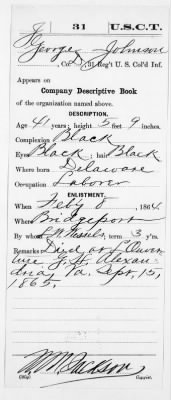 J 31 U.S.C.T.
George Johnson
, Co. , 31 Reg't U. S. Col'd Inf.
Appears on
Company Descriptive Book
of the organization named above.
DESCRIPTION.
Age 41 years; height 5 feet 9 inches.
Complexion Black
Eyes Black ; hair Black
Where born Delaware
Occupation Laborer
ENLISTMENT.
When Feb'y 8 , 1864.
Where Bridgeport
By whom ; term 3 y'rs.
Remarks Died at L'Ouver
ture G. H. Alexan
dria Va. Sept. 15,
1865.
Jackson
Copyist.